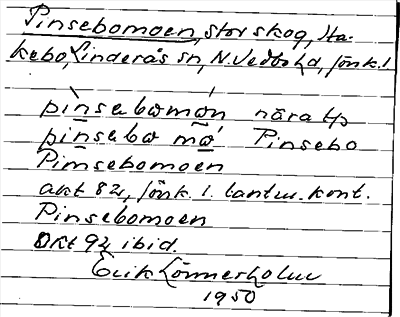 Pinsebomoen, stor skog, Ha-
kebo, Linderås sn, N. Vedbo hd, Jönk. l.
pinsebωmωn nära tp
pinsebω mω Pinsebo
Pimsebomoen
akt 82, Jönk. l. lantm. kont.
Pinsebomoen
Okt 92 ibid.
Erik Lönnerholm
1950